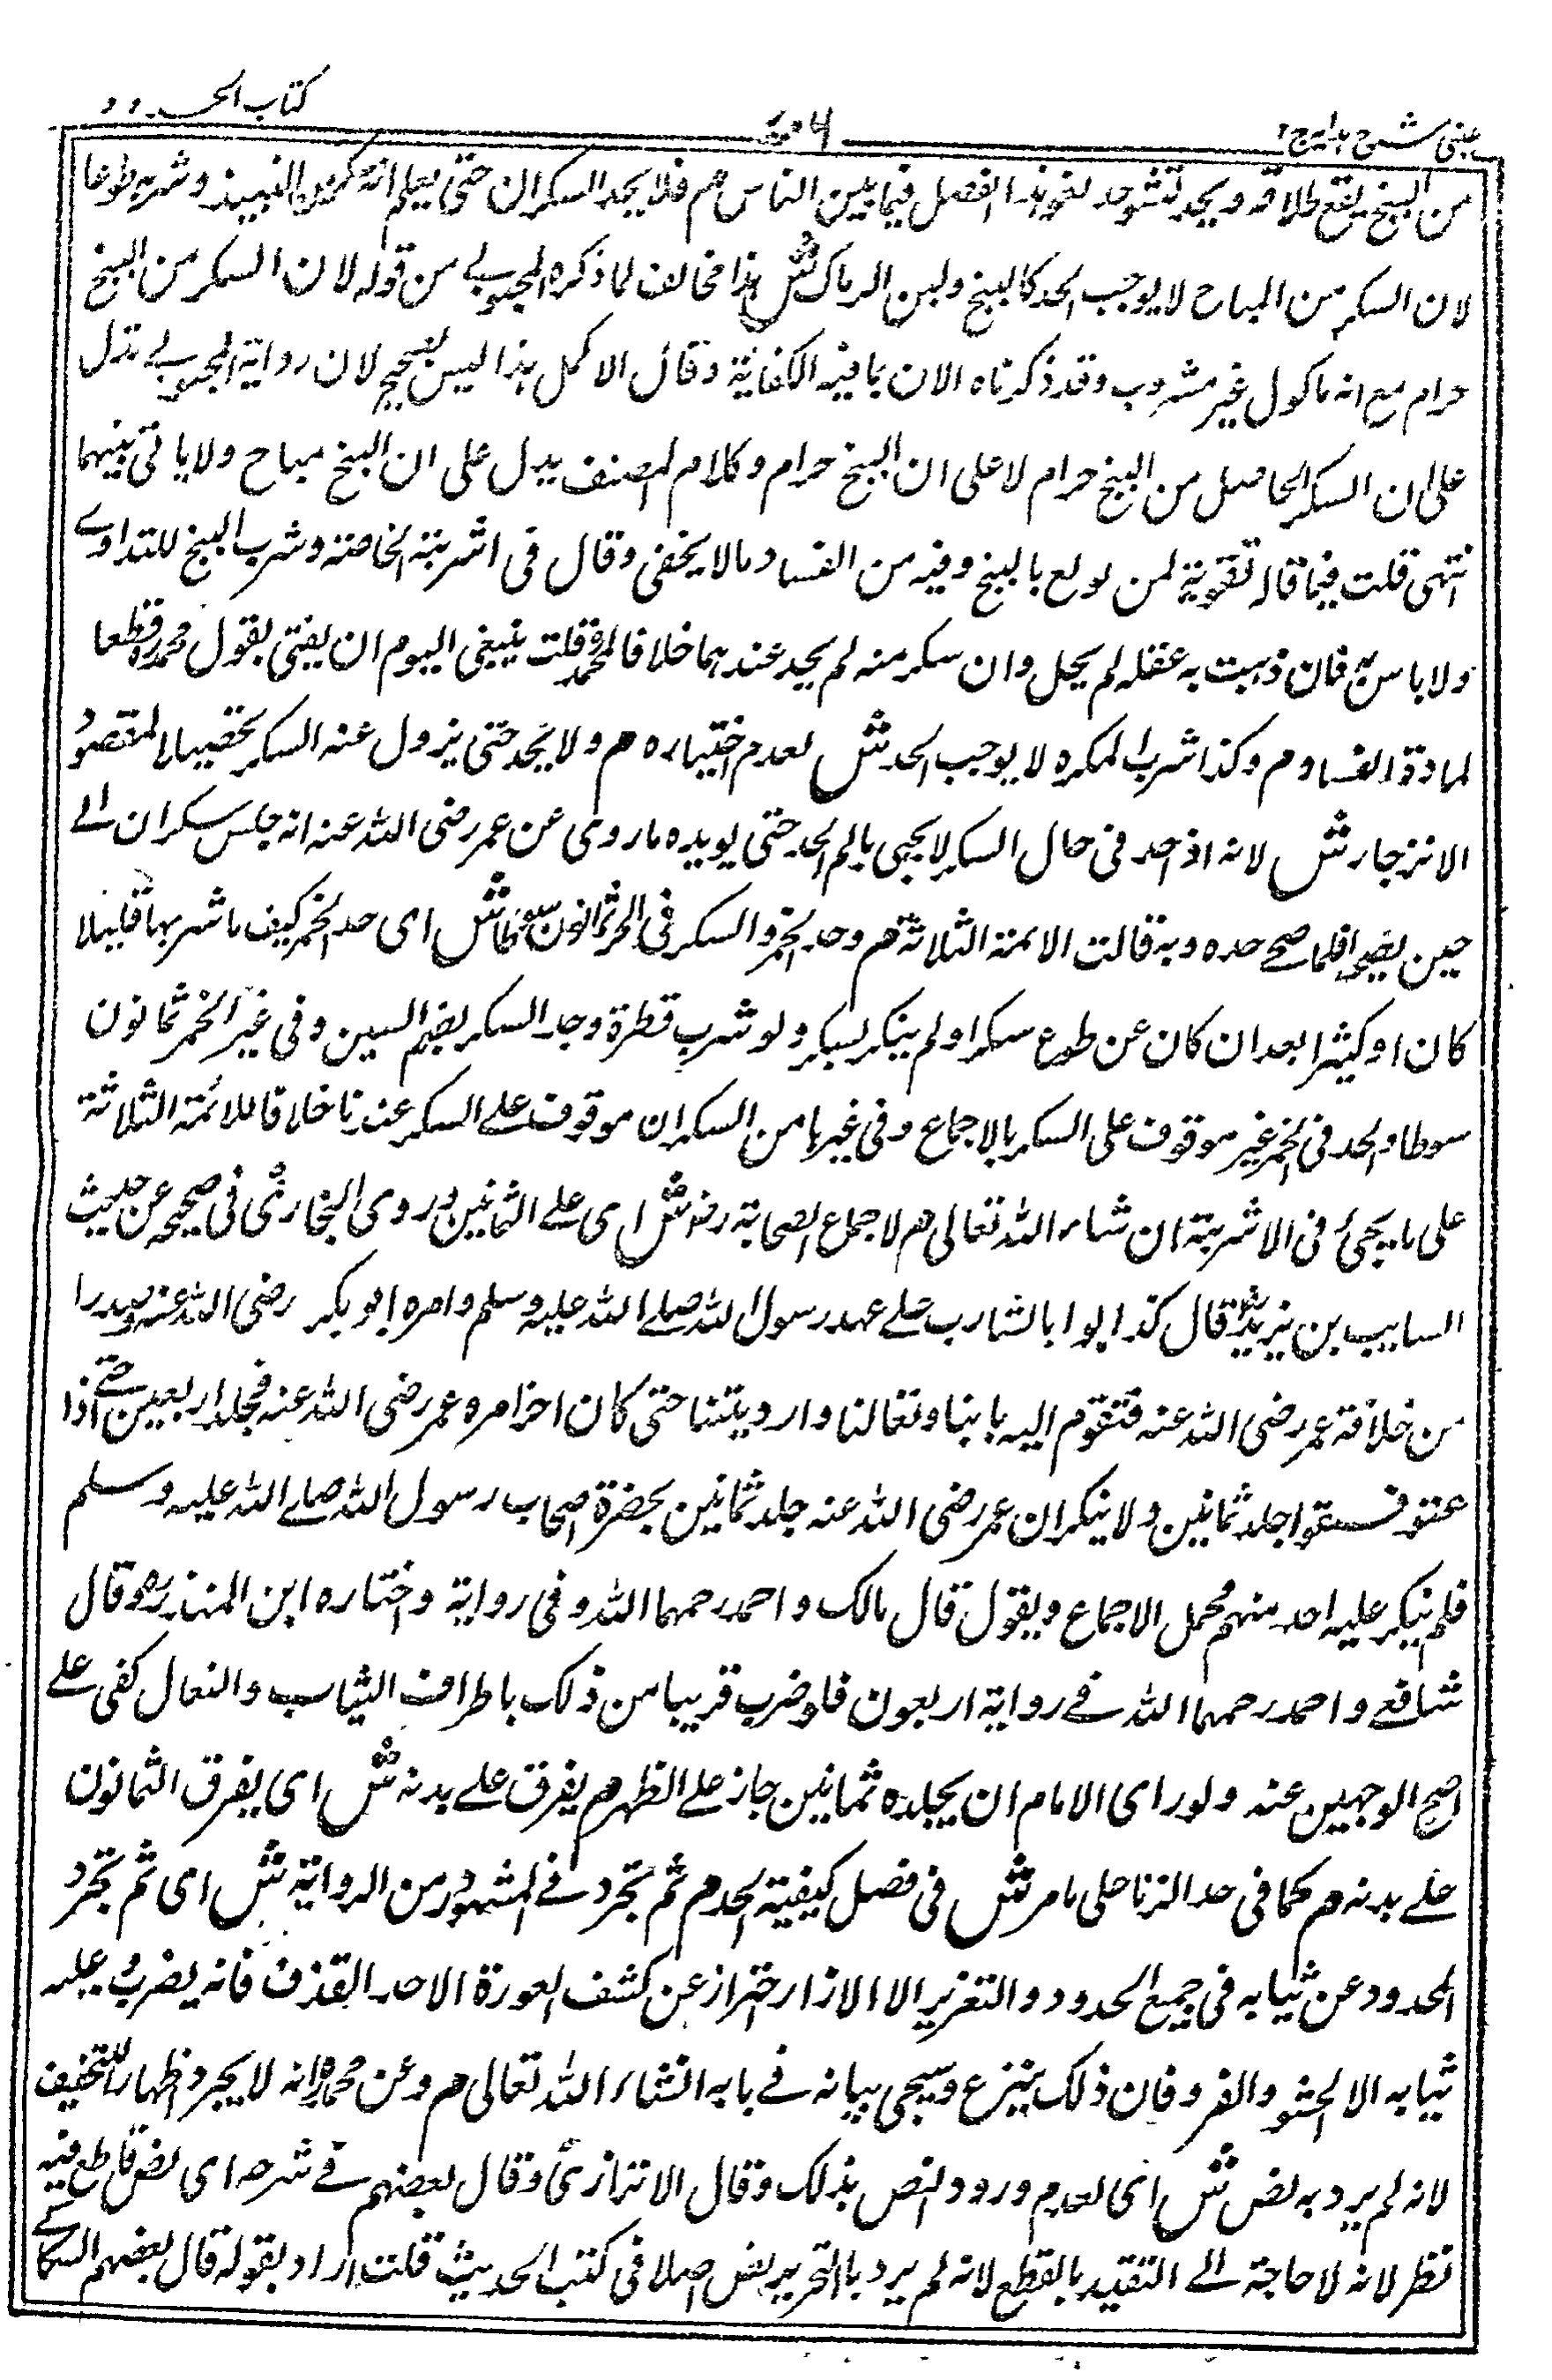 كتاب الحدود
عینی شرح هدایه ج ٢
من البنج يقع طلاقه ويحد لفشو هذا الفصل فيما بين الناس م فلا يحد السكران حتى يعلم انه سكر من النبيذ وشربه طوعا
لان السكر من المباح لا يوجب الحد كالبنج ولبن الرماك ش هذا مخالف لما ذكره المحبوبے من قوله لان السكر من البنج
حرام مع انه ماكول غير مشروب وقد ذكرناه الان بما فيه الكفاية وقال الاكمل هذا ليس بصحيح لان رواية المحبوبے تدل
على ان السكر الحاصل من البنج حرام لا على ان البنج حرام وكلام المصنف يدل على ان البنج مباح ولا ياتى بينهما
انتهى قلت فيما قاله تقوية لمن يولع بالبنج وفيه من الفساد مالا يخفى وقال فى اشربة الخاصة وشرب البنج للتداوے
ولا باس به فان ذهبت به عقله لم يحل وان سكر منه لم يحد عندهما خلافا لمحمد قلت ينبغى اليوم ان يفتى بقول محمد قطعا
لمادة الفساد م وكذا شرب المكره لا يوجب الحد ش لعدم اختياره م ولا يحد حتى يزول عنه السكر تحصيلا لمقصود
الانزجار ش لانه اذا حد فى حال السكر لا يجى بالم الحد حتى يويده ما روى عن عمر رضى الله عنه انه جلس سكران الے
حين يضحوا فلما صح حده وبه قالت الائمة الثلاثة م وحد الخمر والسكر فى الحر ثمانون سوطا ش اى حد الخمر كيف ما شربها قليلا
كان او كثيرا بعد ان كان عن طوع سكرا ولم ينكر بسكر ولو شرب قطرة وحد السكر بضم السين وفى غير الخمر ثمانون
سوطا والحد فى الخمر غير موقوف على السكر بالاجماع وفى غيرها من السكران موقوف علے السكر عندنا خلافا للائمة الثلاثة
على ما يجئ فى الاشربة ان شاء الله تعالى م لاجماع الصحابة رض ش اى علے الثمانين وروى البخارى فى صحيحه عن حديث
السايب بن يزيد قال كذا يوا بالشارب علے عهد رسول الله صلے الله عليه وسلم وامره ابو بكر رضى الله عنه وصدرا
من خلافة عمر رضى الله عنه فتقوم اليه بايدنا ونعالنا وارديتنا حتى كان اخر امره عمر رضى الله عنه فجلد اربعين حتے اذا
عتو وفسقوا جلد ثمانين ولا ينكر ان عمر رضى الله عنه جلد ثمانين بحضرة اصحاب رسول الله صلے الله عليه وسلم
فلم ينكر عليه احد منهم محمل الاجماع ويقول قال مالك واحمد رحمهما الله وفى رواية واختاره ابن المنذر وقال
شافعے واحمد رحمهما الله فے رواية اربعون فلو ضرب قريبا من ذلك باطراف الثياب والنعال كفى علے
اصح الوجهين عنه ولو راى الامام ان يجلده ثمانين جاز علے الظهر م يفرق علے بدنه ش اى يفرق الثمانون
علے بدنه م كما فى حد الزنا على ما مر ش فى فصل كيفية الحد م ثم تجرد فے المشهور من الرواية ش اى ثم تجرد
المحدود عن ثيابه فى جميع الحدود والتعزير الا الازار احتراز عن كشف العورة الا حد القذف فانه يضرب عليه
ثيابه الا الحشو والفرو فان ذلك ينزع وسيجى بيانه فے بابه انشاء الله تعالى م وعن محمد انه لا يجرد اظهارا للتخفيف
لانه لم يرد به نص ش اى لعدم ورود النص بذلك وقال الاترازى وقال بعضهم فے شرحه اى نص قاطع فيه
نظر لانه لا حاجة الے التقييد بالقطع لانه لم يرد بالتجريد نص اصلا فى كتب الحديث قلت اراد بقوله قال بعضهم السكاكے